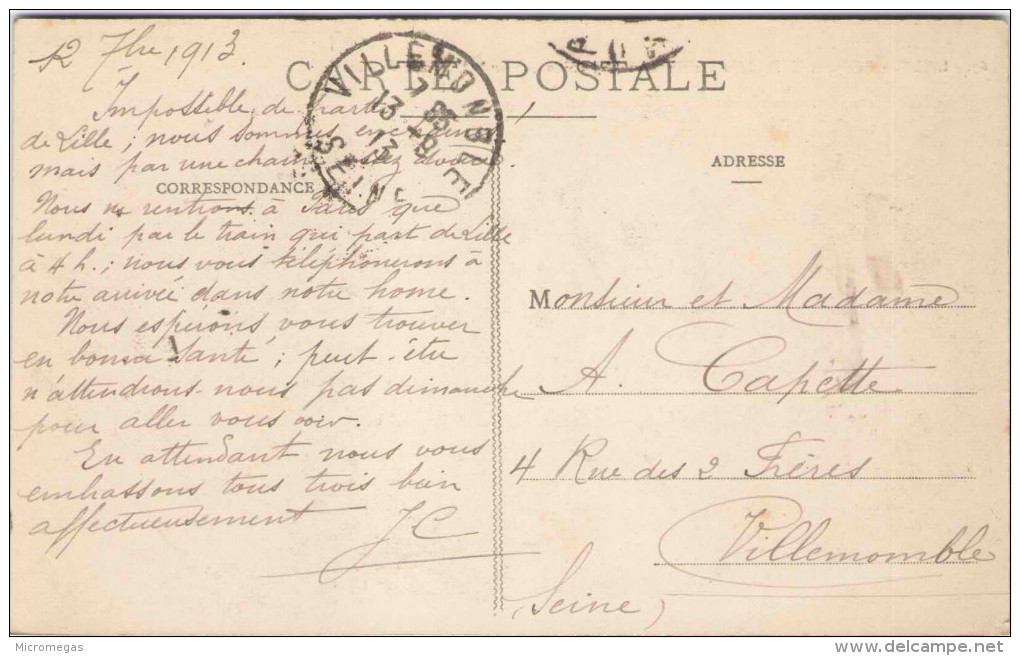 12 7bre 1913.
CARTE POSTALE
Impossible de partir
de Lille; nous sommes encore en
mais par une chaîne
CORRESPONDANCE
Nous ne rentrons à Paris que
lundi par le train qui part de Lille
à 4 h.; nous vous téléphonerons à
notre arrivée dans notre home.
Nous espérons vous trouver
en bonne santé; peut-être
n'attendrons-nous pas dimanche
pour aller vous voir.
En attendant nous vous
embrassons tous trois bien
affectueusement
JC
VILLEMOMBLE
SEINE
13 - 9
13
ADRESSE
Monsieur et Madame
A. Capette
4 Rue des 2 Frères
Villemomble
(Seine)
Micromegas
delcampe.net